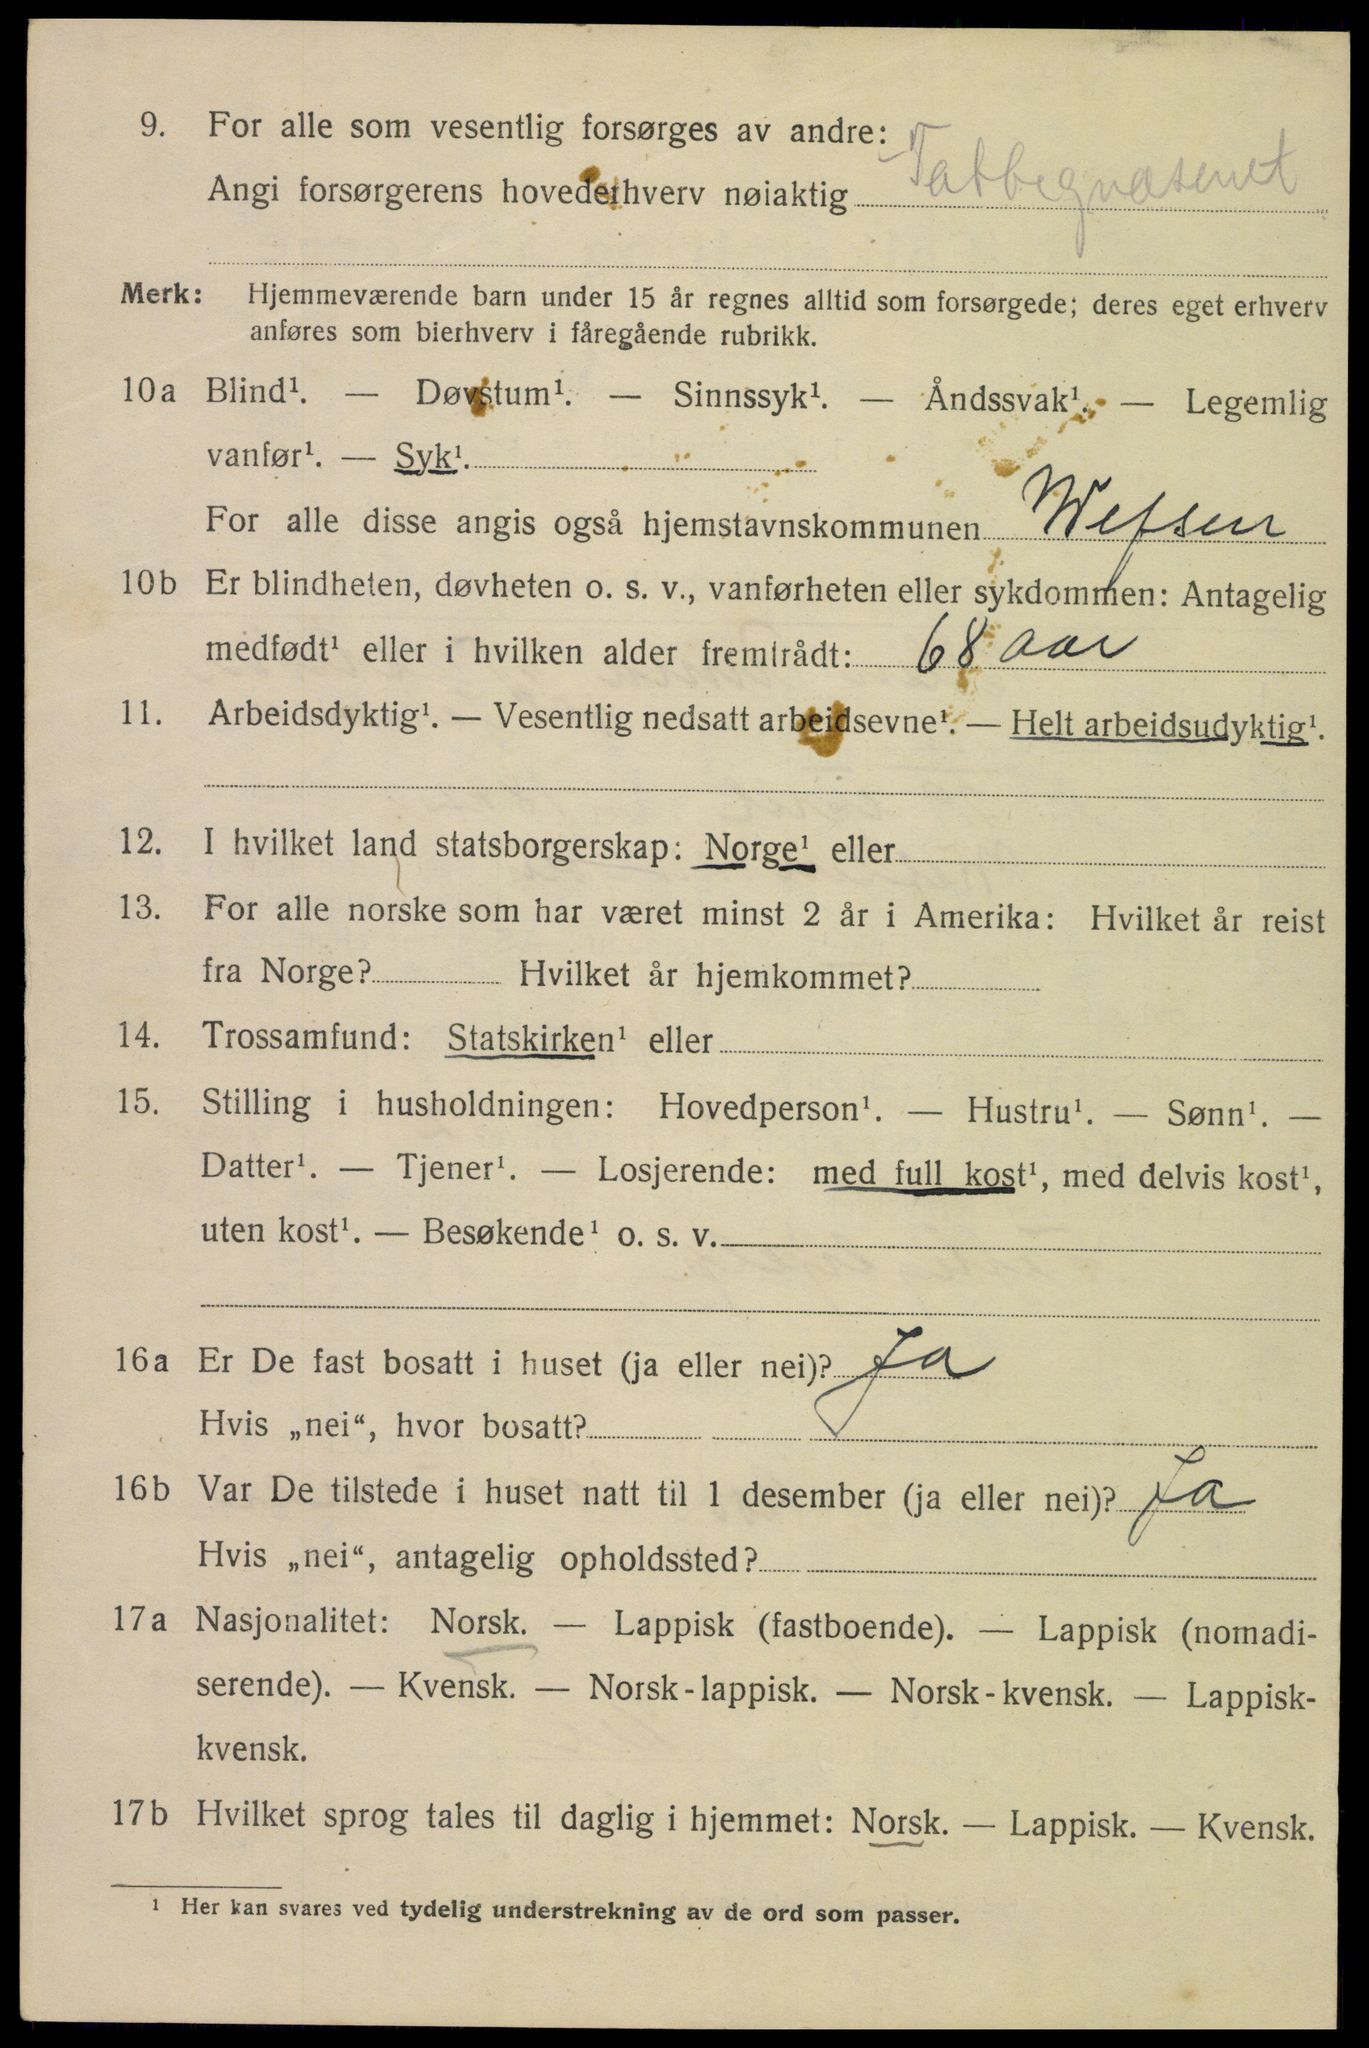 9. For alle som vesentlig forsørges av andre:
Angi forsørgerens hovederhverv nøiaktig Fatbegvæsenet
Merk: Hjemmeværende barn under 15 år regnes alltid som forsørgede; deres eget erhverv
anføres som bierhverv i fåregående rubrikk.
10a Blind¹. — Døvstum¹. — Sinnssyk¹. — Åndssvak¹. — Legemlig
vanfør¹. — Syk¹.
For alle disse angis også hjemstavnskommunen Wefsen
10b Er blindheten, døvheten o. s. v., vanførheten eller sykdommen: Antagelig
medfødt¹ eller i hvilken alder fremtrådt: 68 aar
11. Arbeidsdyktig¹. — Vesentlig nedsatt arbeidsevne¹. — Helt arbeidsudyktig¹.
12. I hvilket land statsborgerskap: Norge¹ eller
13. For alle norske som har været minst 2 år i Amerika: Hvilket år reist
fra Norge? Hvilket år hjemkommet?
14. Trossamfund: Statskirken¹ eller
15. Stilling i husholdningen: Hovedperson¹. — Hustru¹. — Sønn¹. —
Datter¹. — Tjener¹. — Losjerende: med full kost¹, med delvis kost¹,
uten kost¹. — Besøkende¹ o. s. v.
16a Er De fast bosatt i huset (ja eller nei)? Ja
Hvis „nei“, hvor bosatt?
16b Var De tilstede i huset natt til 1 desember (ja eller nei)? Ja
Hvis „nei“, antagelig opholdssted?
17a Nasjonalitet: Norsk. — Lappisk (fastboende). — Lappisk (nomadi-
serende). — Kvensk. — Norsk-lappisk. — Norsk-kvensk. — Lappisk-
kvensk.
17b Hvilket sprog tales til daglig i hjemmet: Norsk. — Lappisk. — Kvensk.
¹ Her kan svares ved tydelig understrekning av de ord som passer.